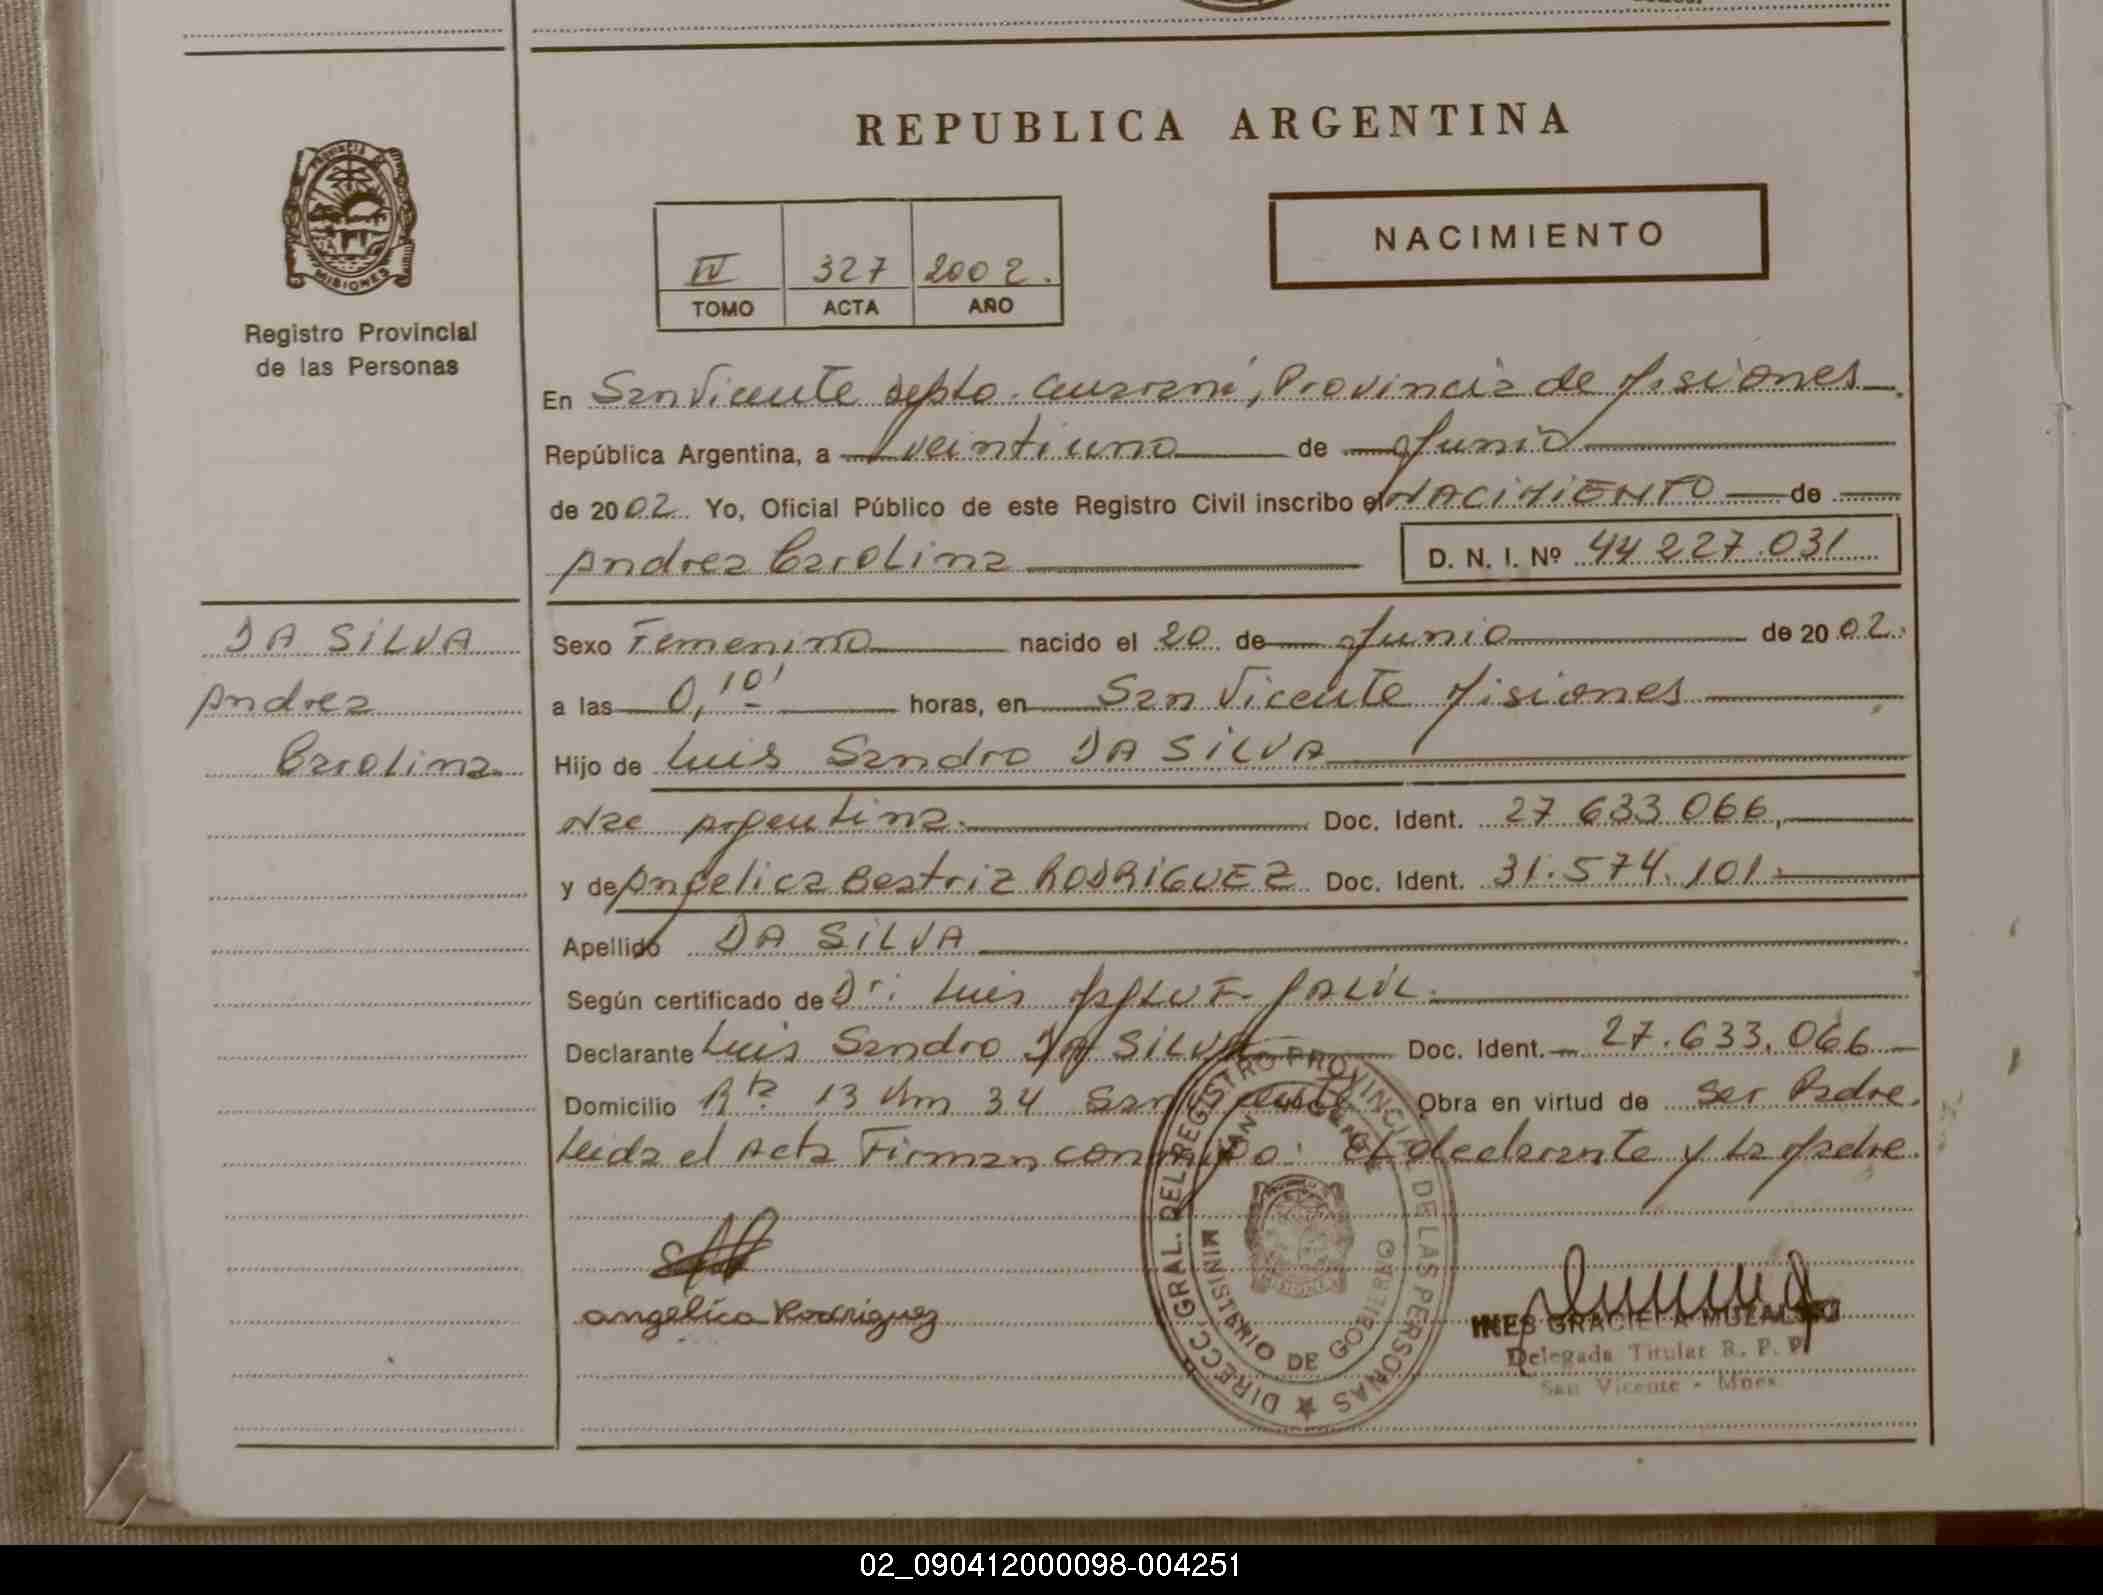 REPUBLICA ARGENTINA
PROVINCIA DE
MISIONES
Registro Provincial
de las Personas
NACIMIENTO
IV 327 2002.
TOMO ACTA AÑO
En San Vicente Depto. Guaraní, Provincia de Misiones
República Argentina, a veintiuno de Junio
de 2002. Yo, Oficial Público de este Registro Civil inscribo el NACIMIENTO de
Andrea Carolina D. N. I. Nº 44 227.031
DA SILVA
Andrea
Carolina
Sexo Femenino nacido el 20 de Junio de 2002.
a las 0,10' horas, en San Vicente Misiones
Hijo de Luis Sandro DA SILVA
Nac Argentina. Doc. Ident. 27 633 066,
y de Angelica Beatriz RODRIGUEZ Doc. Ident. 31.574.101
Apellido DA SILVA
Según certificado de Dr: Luis
Declarante Luis Sandro DA SILVA Doc. Ident. 27.633.066
Domicilio Rta 13 Km 34 San Vicente Obra en virtud de ser Padre.
Leida el Acta Firman conmigo: El declarante y la Madre.
angelica Rodriguez
DIRECC. GRAL. DEL REGISTRO PROVINCIAL DE LAS PERSONAS
MINISTERIO DE GOBIERNO
SAN VICENTE
INES GRACIELA
Delegada Titular R. P. P.
San Vicente - Mnes.
02_090412000098-004251